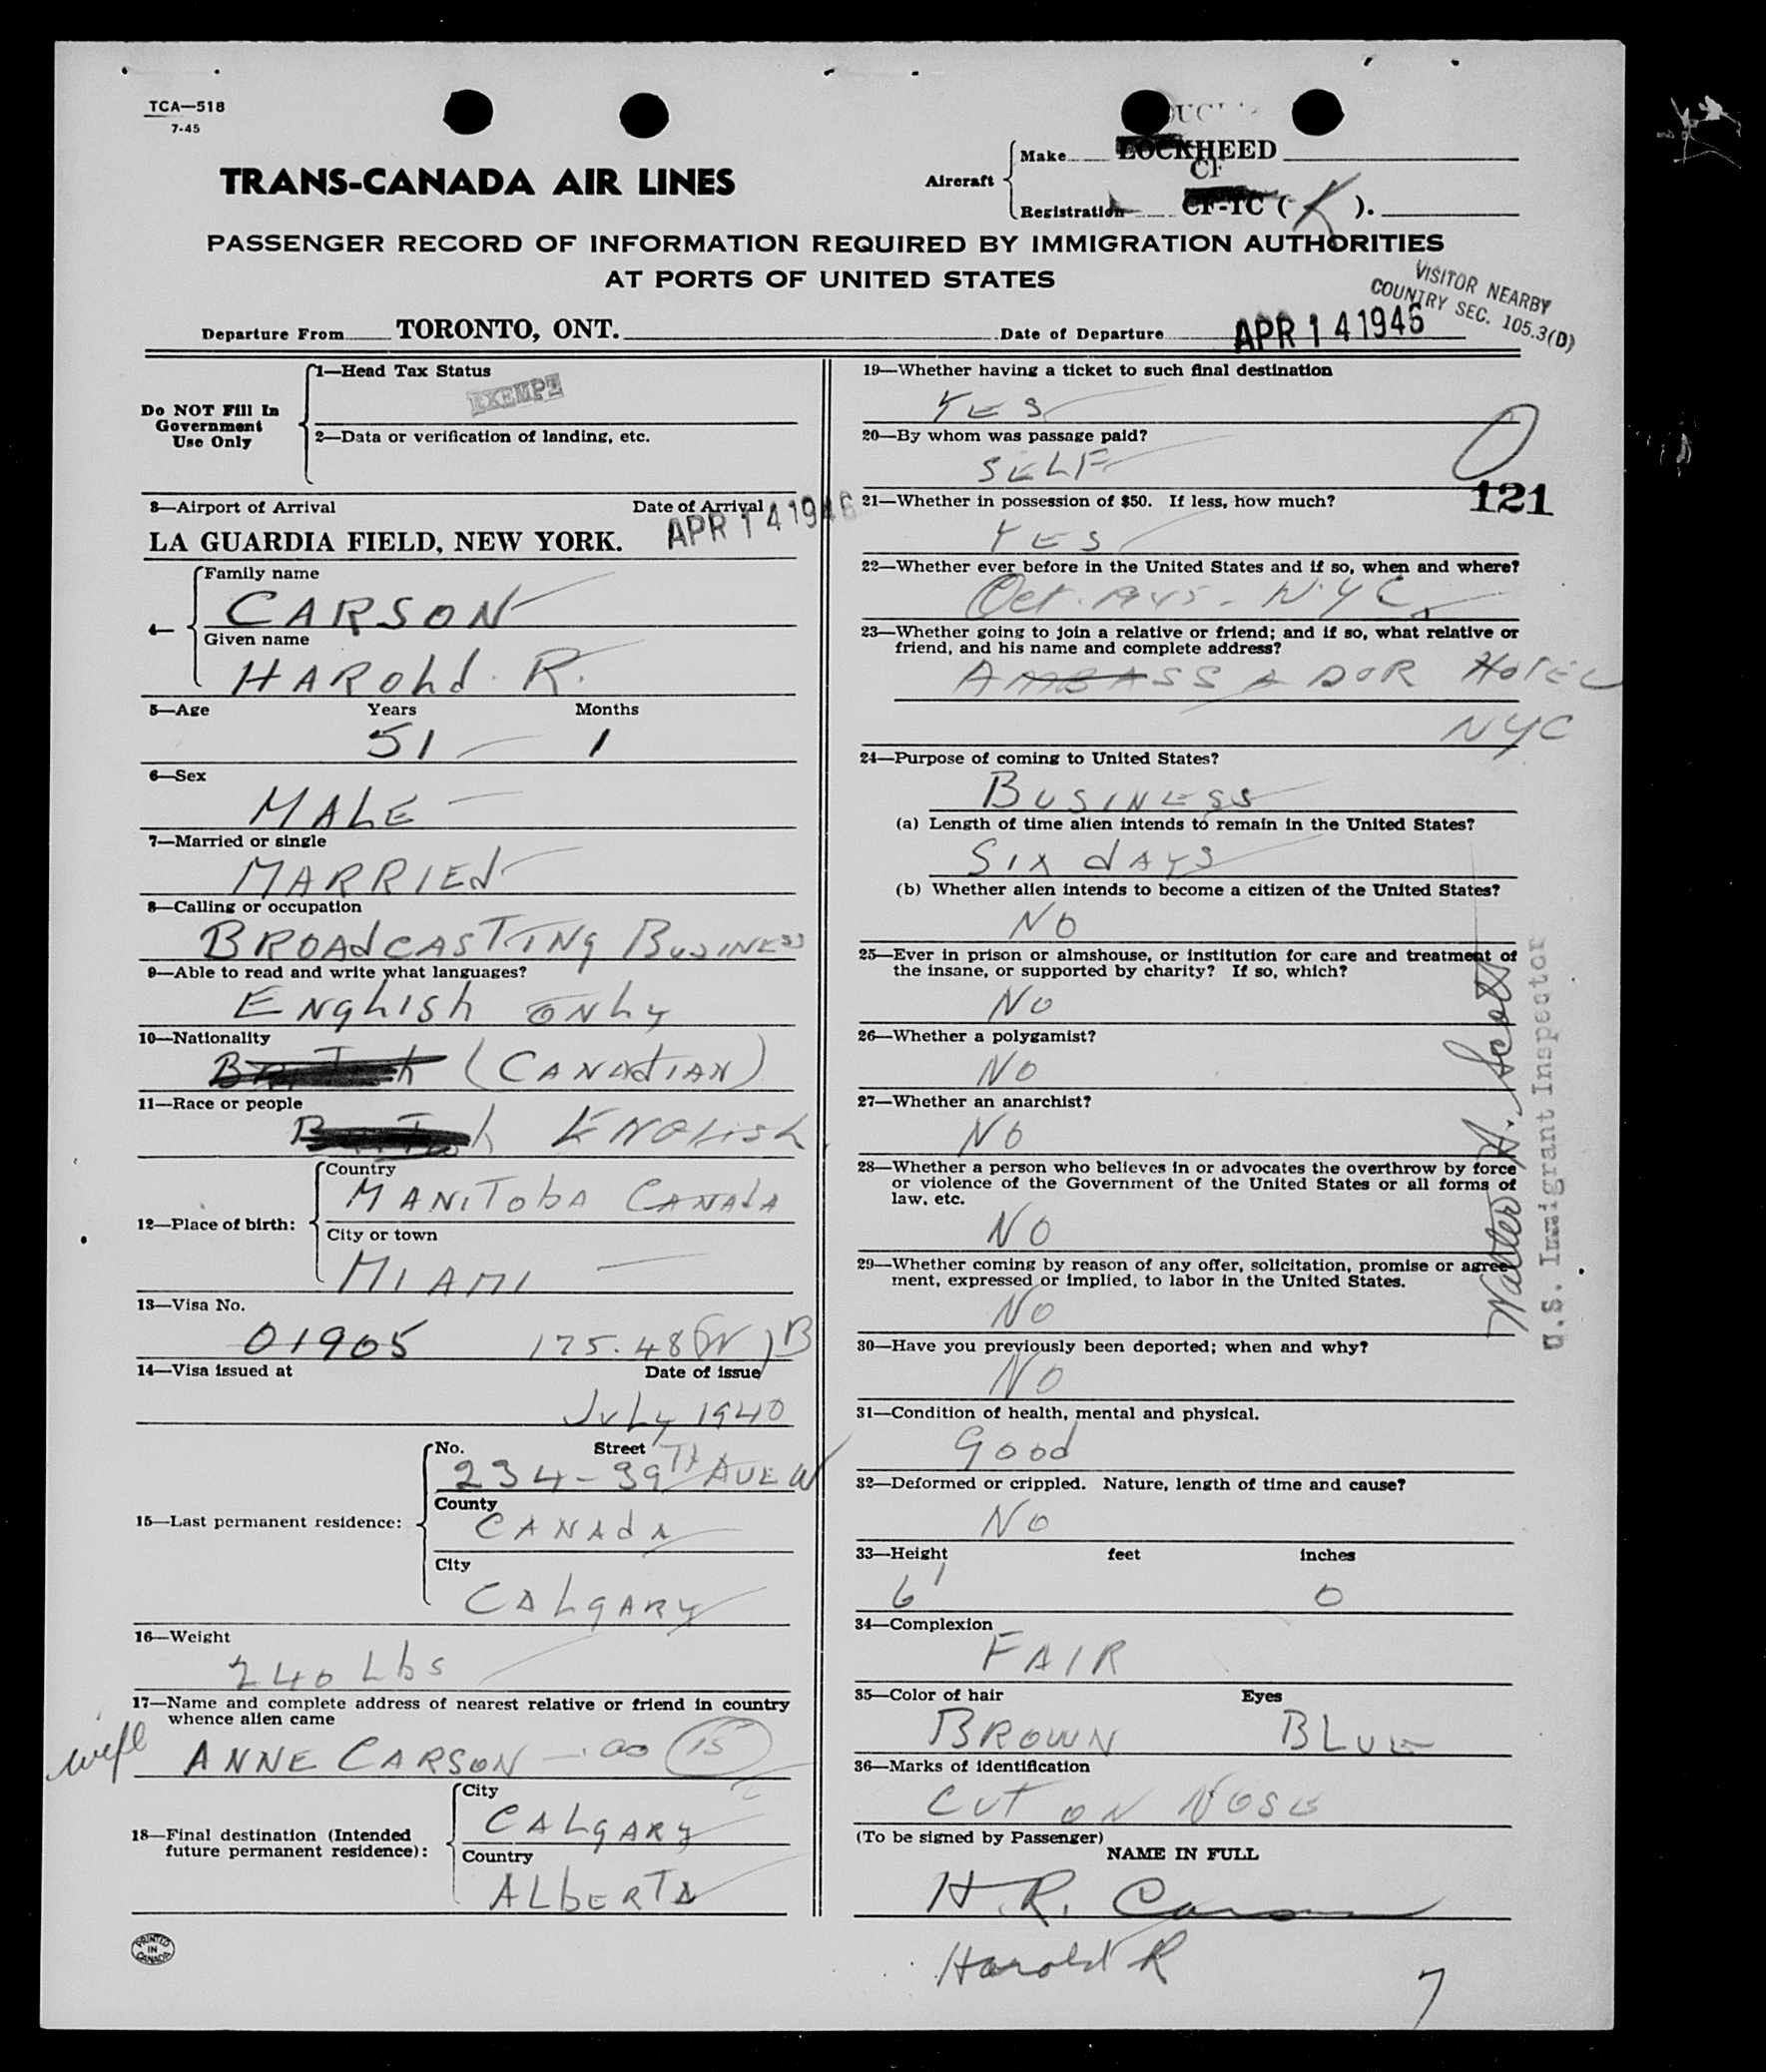 TCA—518
7-45
TRANS-CANADA AIR LINES
Aircraft
Make LOCKHEED
CF
Registration CF-TC ( K ).
PASSENGER RECORD OF INFORMATION REQUIRED BY IMMIGRATION AUTHORITIES
AT PORTS OF UNITED STATES
VISITOR NEARBY
COUNTRY SEC. 105.3(D)
Departure From TORONTO, ONT. Date of Departure APR 14 1946
Do NOT Fill In
Government
Use Only
1—Head Tax Status
EXEMPT
2—Data or verification of landing, etc.
3—Airport of Arrival Date of Arrival
LA GUARDIA FIELD, NEW YORK. APR 14 1946
4—
Family name
CARSON
Given name
HAROLd R.
5—Age Years Months
51 1
6—Sex
MALE
7—Married or single
MARRIEd
8—Calling or occupation
BROAdCASTING BUSINESS
9—Able to read and write what languages?
ENGLISh ONLY
10—Nationality
(CANAdIAN)
11—Race or people
ENGLISH
12—Place of birth:
Country
MANITObA CANAdA
City or town
MIAMI
13—Visa No.
01905 175.48(W)B
14—Visa issued at Date of issue
JULY 1940
15—Last permanent residence:
No. Street
234-39TH AVE W
County
CANAdA
City
CALGARY
16—Weight
240 Lbs
17—Name and complete address of nearest relative or friend in country
whence alien came
wife ANNE CARSON 15
18—Final destination (Intended
future permanent residence):
City
CALGARY
Country
ALbERTA
PRINTED
IN
CANADA
19—Whether having a ticket to such final destination
YES
20—By whom was passage paid?
SELF
21—Whether in possession of $50. If less, how much?
121
YES
22—Whether ever before in the United States and if so, when and where?
Oct. 1945 - N.Y.C.
23—Whether going to join a relative or friend; and if so, what relative or
friend, and his name and complete address?
AMBASSADOR HOTEL
NYC
24—Purpose of coming to United States?
BUSINESS
(a) Length of time alien intends to remain in the United States?
SIX dAYS
(b) Whether alien intends to become a citizen of the United States?
NO
25—Ever in prison or almshouse, or institution for care and treatment of
the insane, or supported by charity? If so, which?
NO
26—Whether a polygamist?
NO
27—Whether an anarchist?
NO
28—Whether a person who believes in or advocates the overthrow by force
or violence of the Government of the United States or all forms of
law, etc.
NO
29—Whether coming by reason of any offer, solicitation, promise or agree-
ment, expressed or implied, to labor in the United States.
NO
30—Have you previously been deported; when and why?
NO
31—Condition of health, mental and physical.
Good
32—Deformed or crippled. Nature, length of time and cause?
NO
33—Height feet inches
6' 0
34—Complexion
FAIR
35—Color of hair Eyes
BROWN BLUE
36—Marks of identification
CUT ON NOSE
(To be signed by Passenger)
NAME IN FULL
H.R. Carson
Harold R
7
Walter H. Scott
U.S. Immigrant Inspector